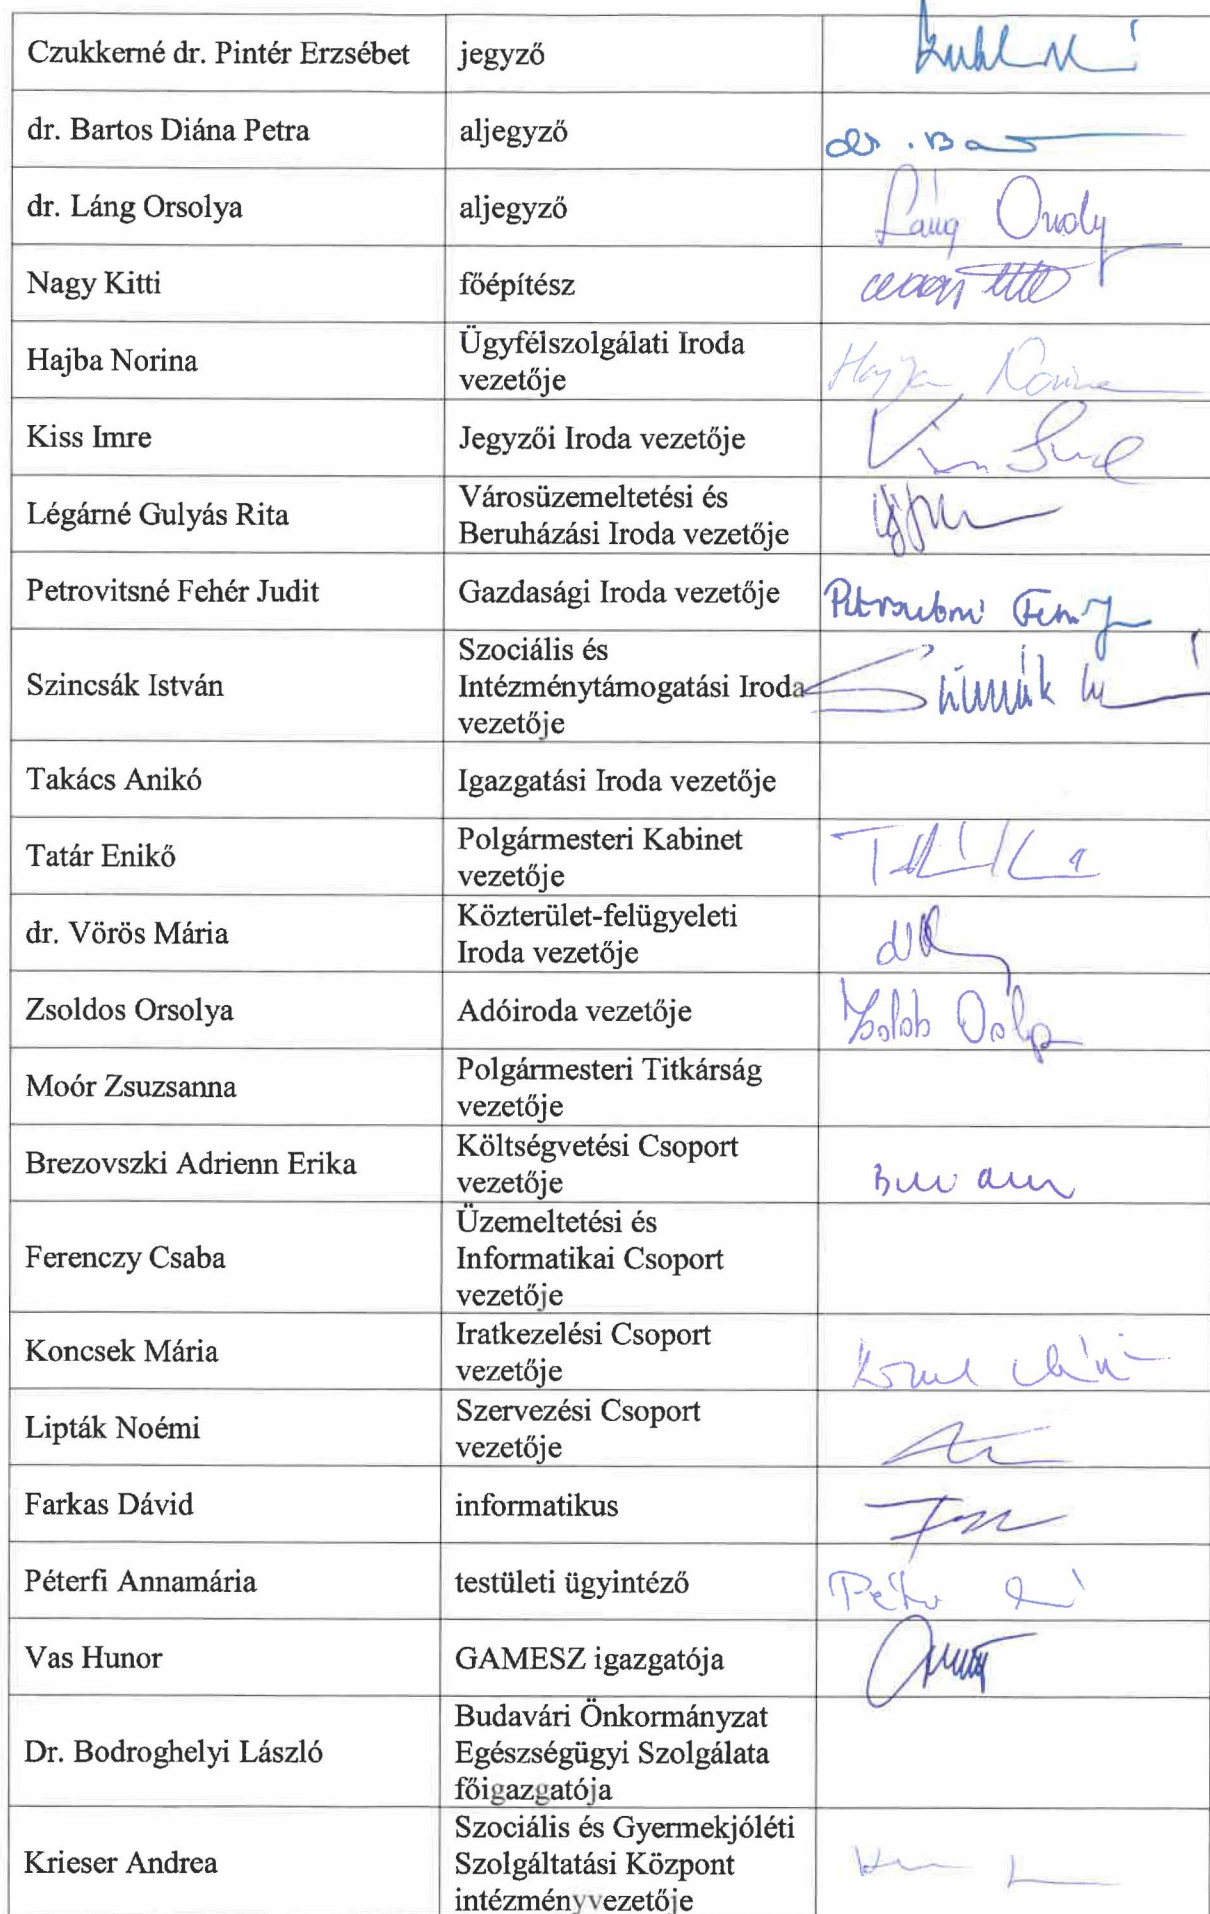 Czukkerné dr. Pintér Erzsébet
jegyző
dr. Bartos Diána Petra
aljegyző
dr. Láng Orsolya
aljegyző
Láng Orsoly
Nagy Kitti
főépítész
Hajba Norina
Ügyfélszolgálati Iroda
vezetője
Kiss Imre
Jegyzői Iroda vezetője
Légárné Gulyás Rita
Városüzemeltetési és
Beruházási Iroda vezetője
Petrovitsné Fehér Judit
Gazdasági Iroda vezetője
Szincsák István
Szociális és
Intézménytámogatási Iroda
vezetője
Takács Anikó
Igazgatási Iroda vezetője
Tatár Enikő
Polgármesteri Kabinet
vezetője
dr. Vörös Mária
Közterület-felügyeleti
Iroda vezetője
Zsoldos Orsolya
Adóiroda vezetője
Moór Zsuzsanna
Polgármesteri Titkárság
vezetője
Brezovszki Adrienn Erika
Költségvetési Csoport
vezetője
Ferenczy Csaba
Üzemeltetési és
Informatikai Csoport
vezetője
Koncsek Mária
Iratkezelési Csoport
vezetője
Lipták Noémi
Szervezési Csoport
vezetője
Farkas Dávid
informatikus
Péterfi Annamária
testületi ügyintéző
Vas Hunor
GAMESZ igazgatója
Dr. Bodroghelyi László
Budavári Önkormányzat
Egészségügyi Szolgálata
főigazgatója
Krieser Andrea
Szociális és Gyermekjóléti
Szolgáltatási Központ
intézményvezetője